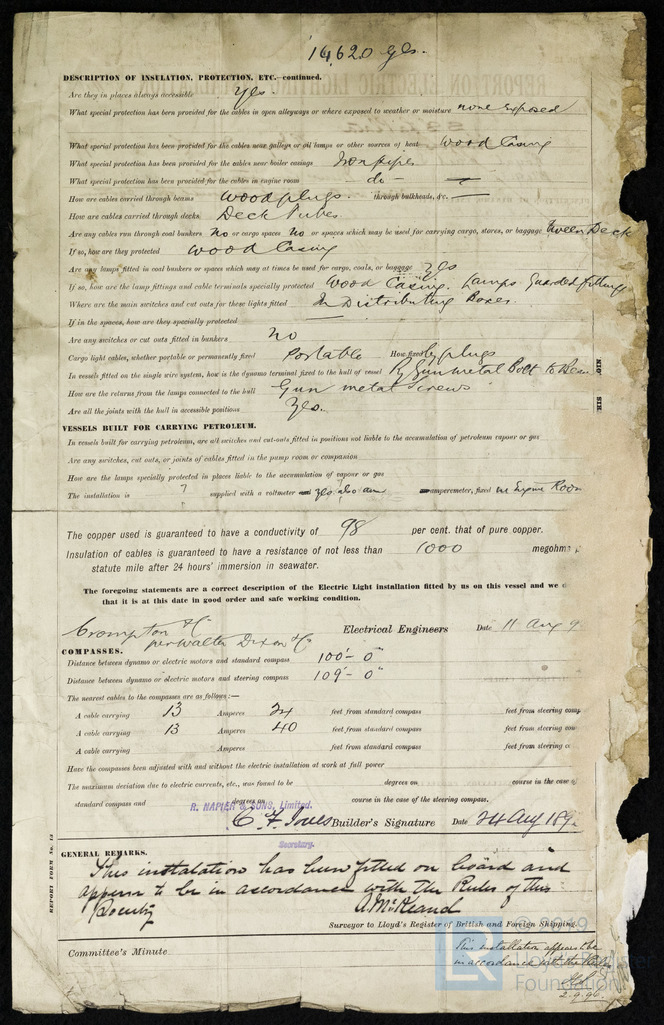 14620 gls.
DESCRIPTION OF INSULATION, PROTECTION, ETC.—continued.
Are they in places always accessible yes.
What special protection has been provided for the cables in open alleyways or where exposed to weather or moisture none exposed
What special protection has been provided for the cables near galleys or oil lamps or other sources of heat wood casing
What special protection has been provided for the cables near boiler casings Iron pipes
What special protection has been provided for the cables in engine room do —
How are cables carried through beams wood plugs. through bulkheads, &c. —
How are cables carried through decks Deck Tubes
Are any cables run through coal bunkers no or cargo spaces no or spaces which may be used for carrying cargo, stores, or baggage tween Deck
If so, how are they protected wood Casing
Are any lamps fitted in coal bunkers or spaces which may at times be used for cargo, coals, or baggage yes
If so, how are the lamp fittings and cable terminals specially protected wood Casing. Lamps Guarded fittings
Where are the main switches and cut outs for these lights fitted In Distributing Boxes.
If in the spaces, how are they specially protected —
Are any switches or cut outs fitted in bunkers no
Cargo light cables, whether portable or permanently fixed Portable How fixed by plugs
In vessels fitted on the single wire system, how is the dynamo terminal fixed to the hull of vessel By Gunmetal Bolt to Beam
How are the returns from the lamps connected to the hull Gun metal screws
Are all the joints with the hull in accessible positions Yes.
VESSELS BUILT FOR CARRYING PETROLEUM.
In vessels built for carrying petroleum, are all switches and cut-outs fitted in positions not liable to the accumulation of petroleum vapour or gas
Are any switches, cut outs, or joints of cables fitted in the pump room or companion
How are the lamps specially protected in places liable to the accumulation of vapour or gas
The installation is supplied with a voltmeter yes also an amperemeter, fixed in Engine Room
The copper used is guaranteed to have a conductivity of 98 per cent. that of pure copper.
Insulation of cables is guaranteed to have a resistance of not less than 1000 megohms p
statute mile after 24 hours' immersion in seawater.
The foregoing statements are a correct description of the Electric Light installation fitted by us on this vessel and we
that it is at this date in good order and safe working condition.
Crompton & Co
per Walter Dixon & Co Electrical Engineers Date 11 Aug 9
COMPASSES.
Distance between dynamo or electric motors and standard compass 100'- 0"
Distance between dynamo or electric motors and steering compass 109'- 0"
The nearest cables to the compasses are as follows:—
A cable carrying 13 Amperes 24 feet from standard compass feet from steering comp
A cable carrying 13 Amperes 40 feet from standard compass feet from steering com
A cable carrying Amperes feet from standard compass feet from steering c
Have the compasses been adjusted with and without the electric installation at work at full power
The maximum deviation due to electric currents, etc., was found to be degrees on course in the case of
standard compass and degrees on course in the case of the steering compass.
R. NAPIER & SONS, Limited.
Builder's Signature Date 24 Aug 189
Secretary.
REPORT FORM No. 13
GENERAL REMARKS.
This installation has been fitted on board and
appears to be in accordance with the Rules of this
Society
A. McKeand
Surveyor to Lloyd's Register of British and Foreign Shipping.
Committee's Minute
This installation appears to be
in accordance with the Rules
2.9.96.
© 2019
Lloyd's Register
Foundation
LR